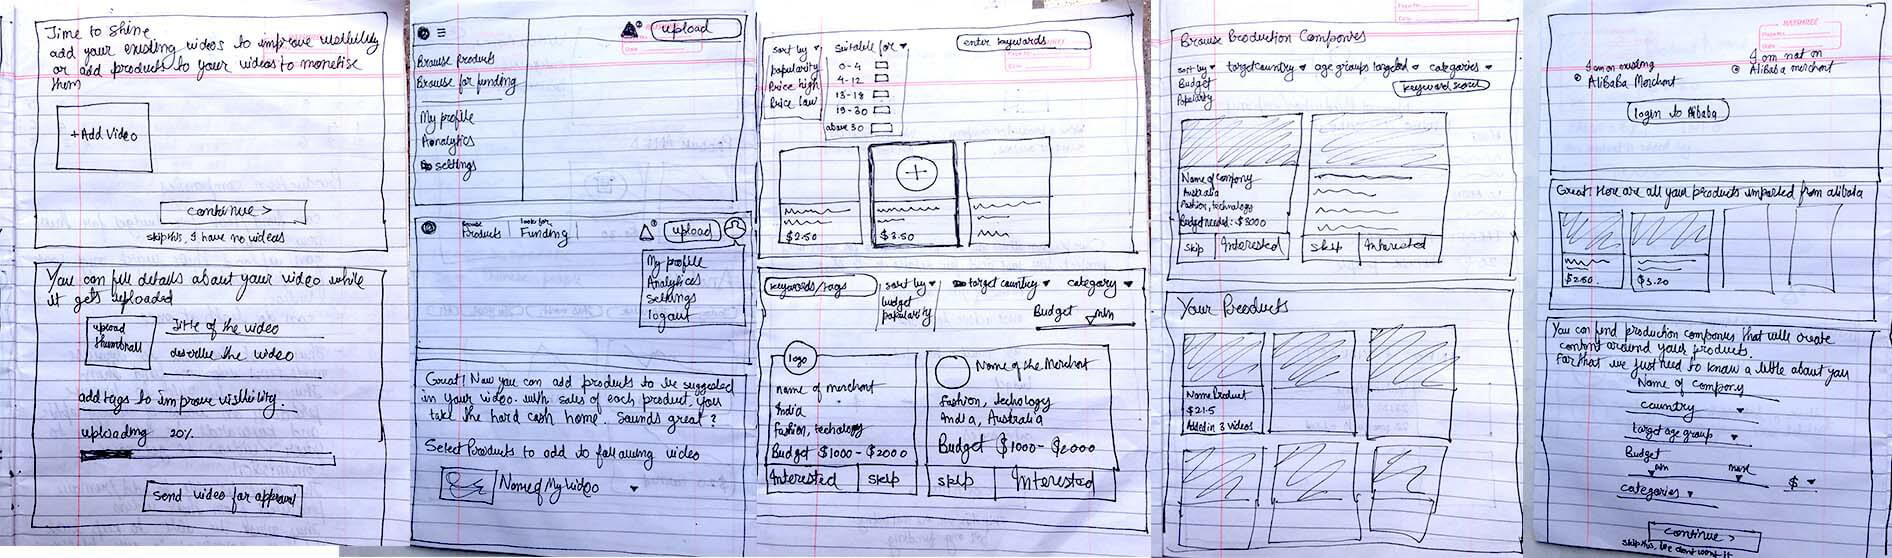 Time to shine
add your existing videos to improve visibility
or add products to your videos to monetise
them
+Add Video
continue >
skip this, I have no videos
You can fill details about your video while
it gets uploaded
upload
thumbnail
Title of the video
describe the video
add tags to improve visibility.
uploading 20%
Send video for approval
upload
Browse products
Browse for funding
My profile
Analytics
settings
Browse
Products
look for
Funding
upload
My profile
Analytics
settings
logout
Great! Now you can add products to be suggested
in your video. with sales of each product, you
take the hard cash home. Sounds great?
Select Products to add to following video
Name of My Video
sort by
popularity
Price high
Price low
Suitable for
0-4
4-12
13-18
19-30
above 30
enter keywords
$2.50
$3.50
keywords/tags
sort by
budget
popularity
target country
category
Budget
min
logo
name of merchant
India
Fashion, technology
Budget $1000 - $2000
Interested
skip
Name of the Merchant
Fashion, techology
India, Australia
Budget $1000 - $2000
skip
Interested
Browse Production Companies
sort by
Budget
Popularity
target country
age groups targeted
categories
Name of company
Australia
Fashion, technology
Budget needed: $3000
Skip
Interested
skip
Interested
Your Products
Name Product
$21.5
Added in 3 videos
I am existing
Alibaba Merchant
I am not an
Alibaba merchant
login to Alibaba
Great! Here are all your products imported from alibaba
$2.50
$3.20
You can find production companies that will create
content around your products.
For that we just need to know a little about you
Name of company
country
target age group
Budget
min
max
$
categories
continue >
skip this, we don't want it